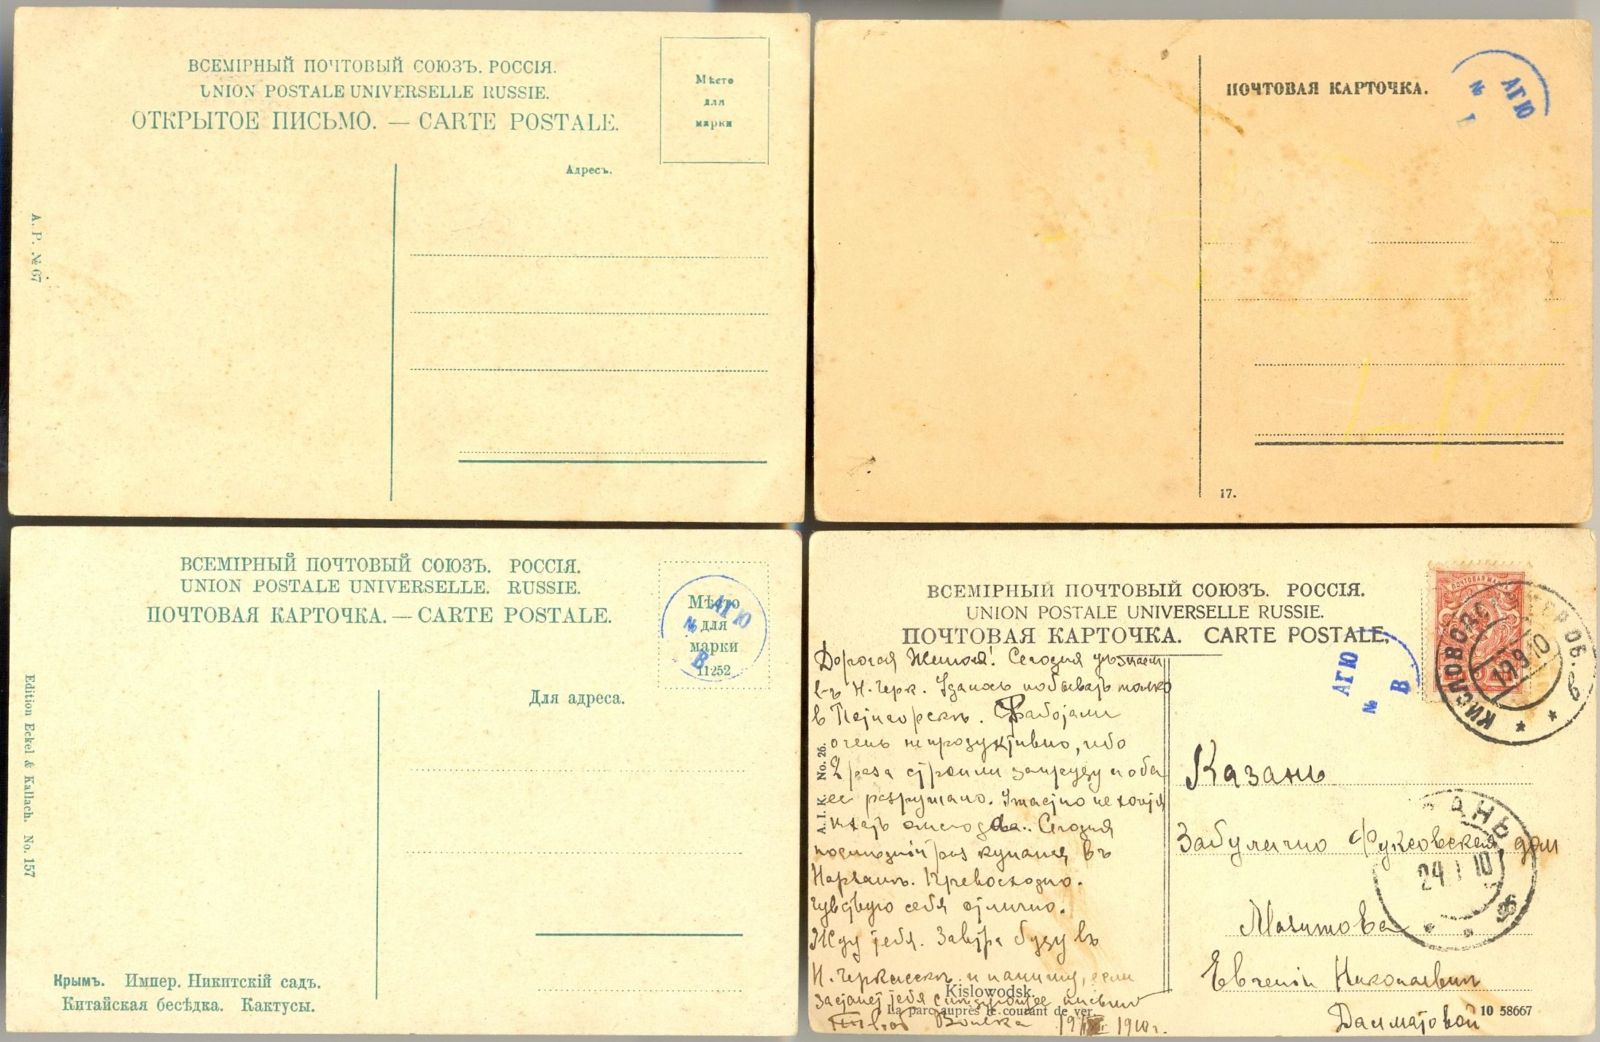 ВСЕМІРНЫЙ ПОЧТОВЫЙ СОЮЗЪ. РОССІЯ.
UNION POSTALE UNIVERSELLE RUSSIE.
ОТКРЫТОЕ ПИСЬМО. — CARTE POSTALE.
Мѣсто
для
марки
Адресъ.
А. Р. № 67
ПОЧТОВАЯ КАРТОЧКА.
АГЮ
№ В
17.
ВСЕМІРНЫЙ ПОЧТОВЫЙ СОЮЗЪ. РОССІЯ.
UNION POSTALE UNIVERSELLE. RUSSIE.
ПОЧТОВАЯ КАРТОЧКА. — CARTE POSTALE.
Мѣсто
для
марки
11252
АГЮ
№ В
Для адреса.
Edition Eckel & Kallach. No. 157
Крымъ. Импер. Никитскій садъ.
Китайская бесѣдка. Кактусы.
ВСЕМІРНЫЙ ПОЧТОВЫЙ СОЮЗЪ. РОССІЯ.
UNION POSTALE UNIVERSELLE RUSSIE.
ПОЧТОВАЯ КАРТОЧКА. CARTE POSTALE.
АГЮ
№ В
КИСЛОВОДС
19 9 10
Дорогая Сегодня
въ Н. Черк. Удалось побывать только
в
очень непродуктивно, ибо
2 раза строили запруду и оба
ее разрушало. Ужасно не хочія
Сегодня
раз купался въ
Нарзанъ. Превосходно.
Чувствую себя отлично.
Жду тебя. Завтра буду въ
Н. и напишу, если
застанет тебя следующее письмо
1910 г.
A. I. K. No. 26.
Kislowodsk.
La parc auprès le courant de ver.
Казань
Забулачно Фуксовская дом
Евгеніи Николаевнѣ
Далматовой
АНЬ
24 10
10 58667